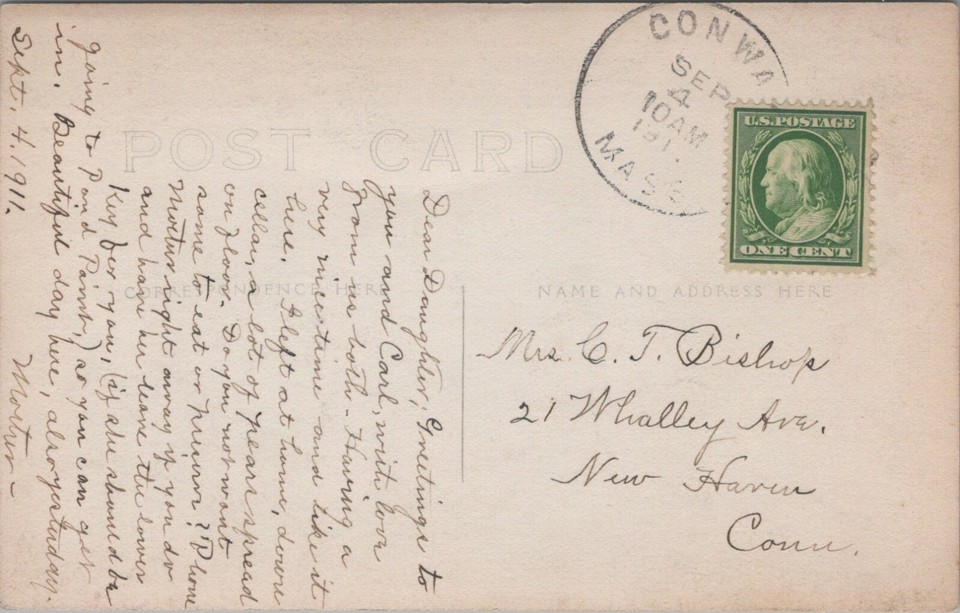 POST CARD
CORRESPONDENCE HERE
NAME AND ADDRESS HERE
CONWA
SEP
4
10AM
191
MASS
U.S. POSTAGE
ONE CENT
Dear Daughter; Greetings to
you and Carl, with love
from us both - Having a
very nice time and like it
here. I left at home, down
cellar, a lot of pears spread
on floor. Do you not want
some to eat or preserve? 'Phone
right away if you do
and have her leave the lower
Key for you, (if she should be
going to Pond Point,) so you can get
in. Beautiful day here, also yesterday.
Sept. 4. 1911. Mother -
Mrs. C. T. Bishop
21 Whalley Ave.
New Haven
Conn.